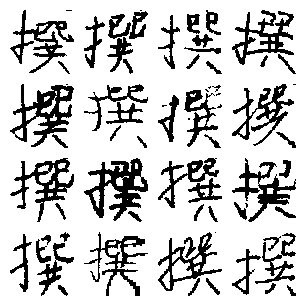 撰撰撰撰
撰撰撰撰
撰撰撰撰
撰撰撰撰